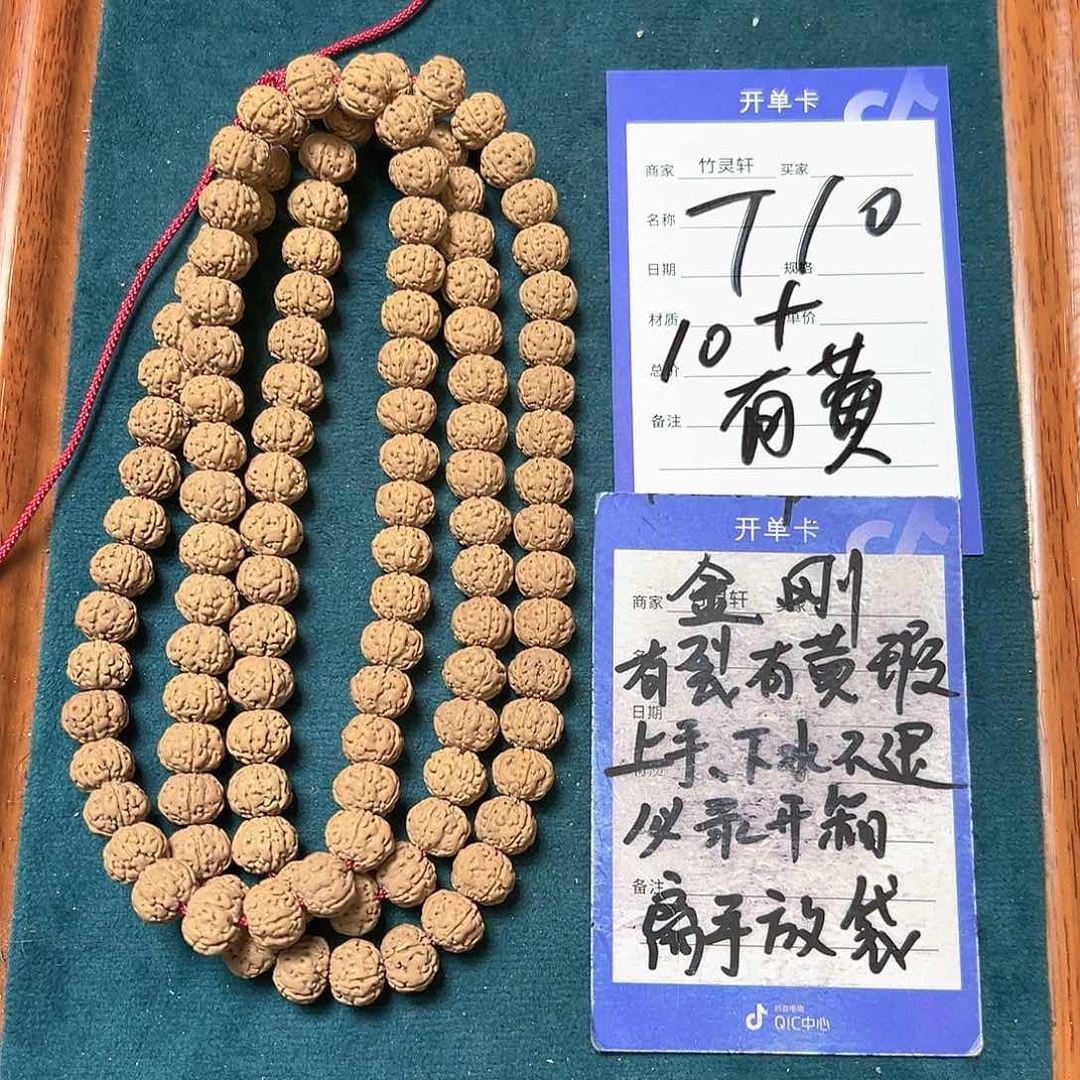 开单卡
商家 竹灵轩 买家
名称 T10
日期 规格
材质 10+ 单价
总价
有黄
备注
开单卡
商家 金刚 轩
有裂有黄瑕
日期
上手、下水不退
必录开箱
备注
离手放袋
抖音电商
QIC中心